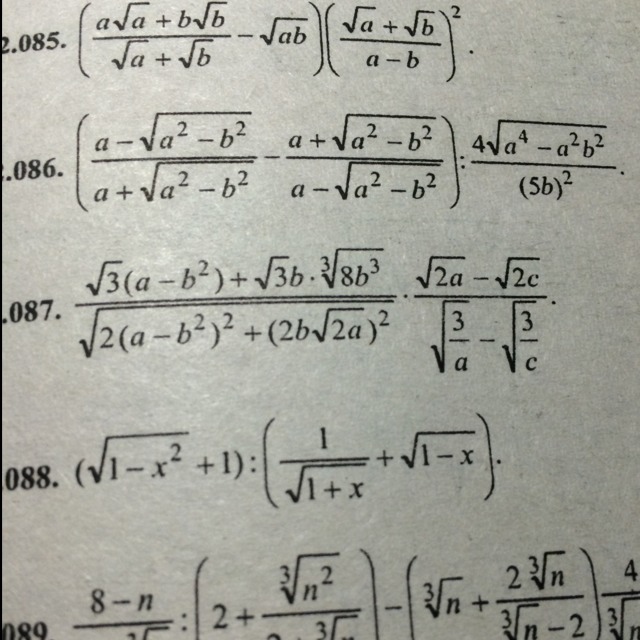 2.085. \left( \frac{a\sqrt{a} + b\sqrt{b}}{\sqrt{a} + \sqrt{b}} - \sqrt{ab} \right) \left( \frac{\sqrt{a} + \sqrt{b}}{a - b} \right)^2.
.086. \left( \frac{a - \sqrt{a^2 - b^2}}{a + \sqrt{a^2 - b^2}} - \frac{a + \sqrt{a^2 - b^2}}{a - \sqrt{a^2 - b^2}} \right) : \frac{4\sqrt{a^4 - a^2b^2}}{(5b)^2}.
.087. \frac{\sqrt{3}(a - b^2) + \sqrt{3}b \cdot \sqrt[3]{8b^3}}{\sqrt{2(a - b^2)^2 + (2b\sqrt{2a})^2}} \cdot \frac{\sqrt{2a} - \sqrt{2c}}{\sqrt{\frac{3}{a}} - \sqrt{\frac{3}{c}}}.
088. (\sqrt{1 - x^2} + 1) : \left( \frac{1}{\sqrt{1 + x}} + \sqrt{1 - x} \right).
089. 8 - n : \left( 2 + \sqrt[3]{n^2} \right) - \left( \sqrt[3]{n} + \frac{2\sqrt[3]{n}}{\sqrt[3]{n} - 2} \right) 4